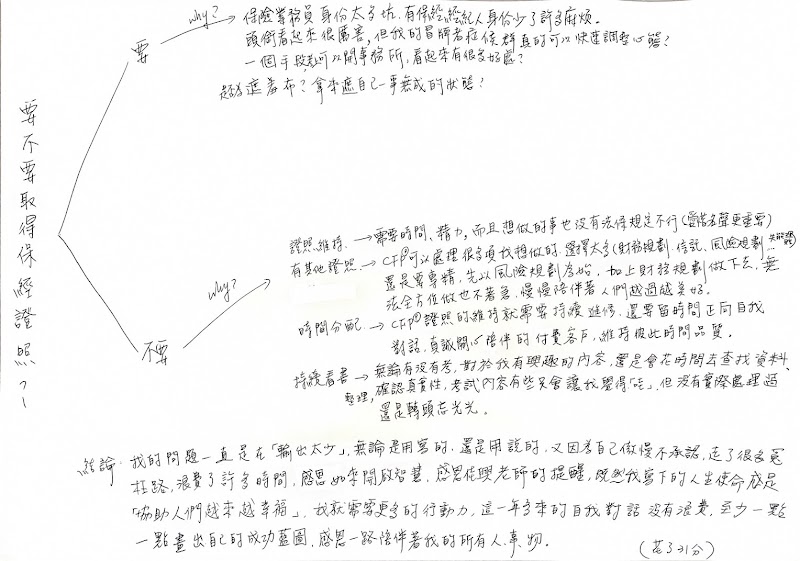 要不要取得保經證照?
要
why?
保險業務員身份太多坑,有保經經紀人身份少了許多麻煩。
頭銜看起來很厲害,但我的冒牌者症候群真的可以快速調整心態?
一個手段就可以開事務所,看起來有很多好處?
遮羞布?拿來遮自己一事無成的狀態?
不要
why?
證照維持 → 需要時間、精力,而且想做的事也沒有法條規定不行(愛惜名聲更重要)
有其他證照 → CFP®可以處理很多項我想做的,選擇太多(財務規劃、信託、風險規劃…
還是要專精,先以風險規劃為始,加上財務規劃做下去,無
法全方位做也不著急,慢慢陪伴著人們越過越美好。
時間分配 → CFP®證照的維持就需要持續進修,還要留時間正向自我
對話,真誠關心陪伴的付費客戶,維持彼此時間品質。
持續看書、整理 → 無論有沒有考,對於我有興趣的內容,還是會花時間去查找資料、
確認真實性,考試內容有些只會讓我覺得「吃」,但沒有實際處理過
還是轉頭忘光光。
結論:我的問題一直是在「輸出太少」,無論是用寫的,還是用說的,又因為自己傲慢不承認,走了很多冤
枉路,浪費了許多時間,感恩如來開啟智慧,感恩佐興老師的提醒,既然我寫下的人生使命感是
「協助人們越來越幸福」,我就需要更多的行動力,這一年多來的自我對話沒有浪費,至少一點
一點畫出自己的成功藍圖,感恩一路陪伴著我的所有人、事、物。
(花了31分)